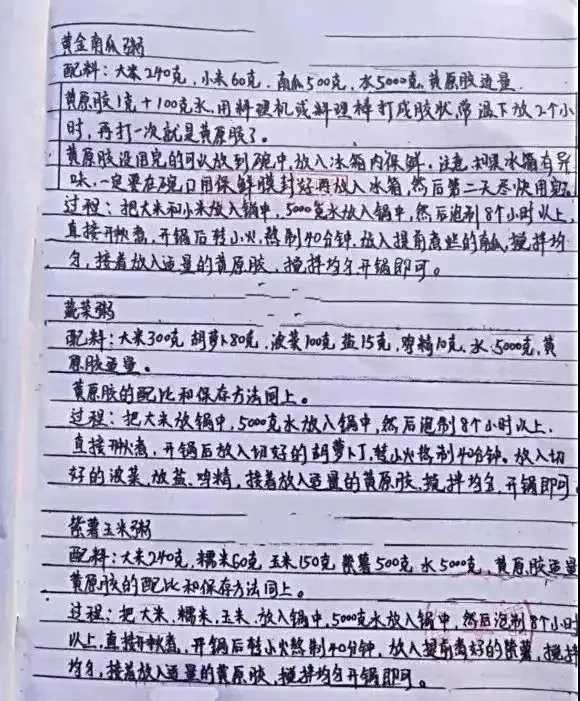 黄金南瓜粥
配料：大米240克，小米60克，南瓜500克，水5000克，黄原胶适量
黄原胶1克+100克水，用料理机或料理棒打成胶状，常温下放2个小
时，再打一次就是黄原胶了。
黄原胶没用完的可以放到碗中，放入冰箱内保鲜，注意，如果冰箱有异
味，一定要在碗口用保鲜膜封好再放入冰箱，然后第二天尽快用完。
过程：把大米和小米放入锅中，5000克水放入锅中，然后泡制8个小时以上，
直接开火煮，开锅后转小火，熬制40分钟，放入提前煮烂的南瓜，搅拌均
匀，接着放入适量的黄原胶，搅拌均匀开锅即可。
蔬菜粥
配料：大米300克 胡萝卜80克，菠菜100克 盐15克，鸡精10克，水5000克，黄
原胶适量。
黄原胶的配比和保存方法同上。
过程：把大米放锅中，5000克水放入锅中，然后泡制8个小时以上，
直接开火煮，开锅后放入切好的胡萝卜丁，转小火熬制40分钟。放入切
好的菠菜，放盐、鸡精，接着放入适量的黄原胶，搅拌均匀，开锅即可
紫薯玉米粥
配料：大米240克，糯米60克 玉米150克 紫薯500克 水5000克，黄原胶适量
黄原胶的配比和保存方法同上。
过程：把大米，糯米，玉米，放入锅中，5000克水放入锅中，然后泡制8个小时
以上，直接开火煮，开锅后转小火熬制40分钟，放入提前煮好的紫薯，搅拌
均匀，接着放入适量的黄原胶，搅拌均匀开锅即可。